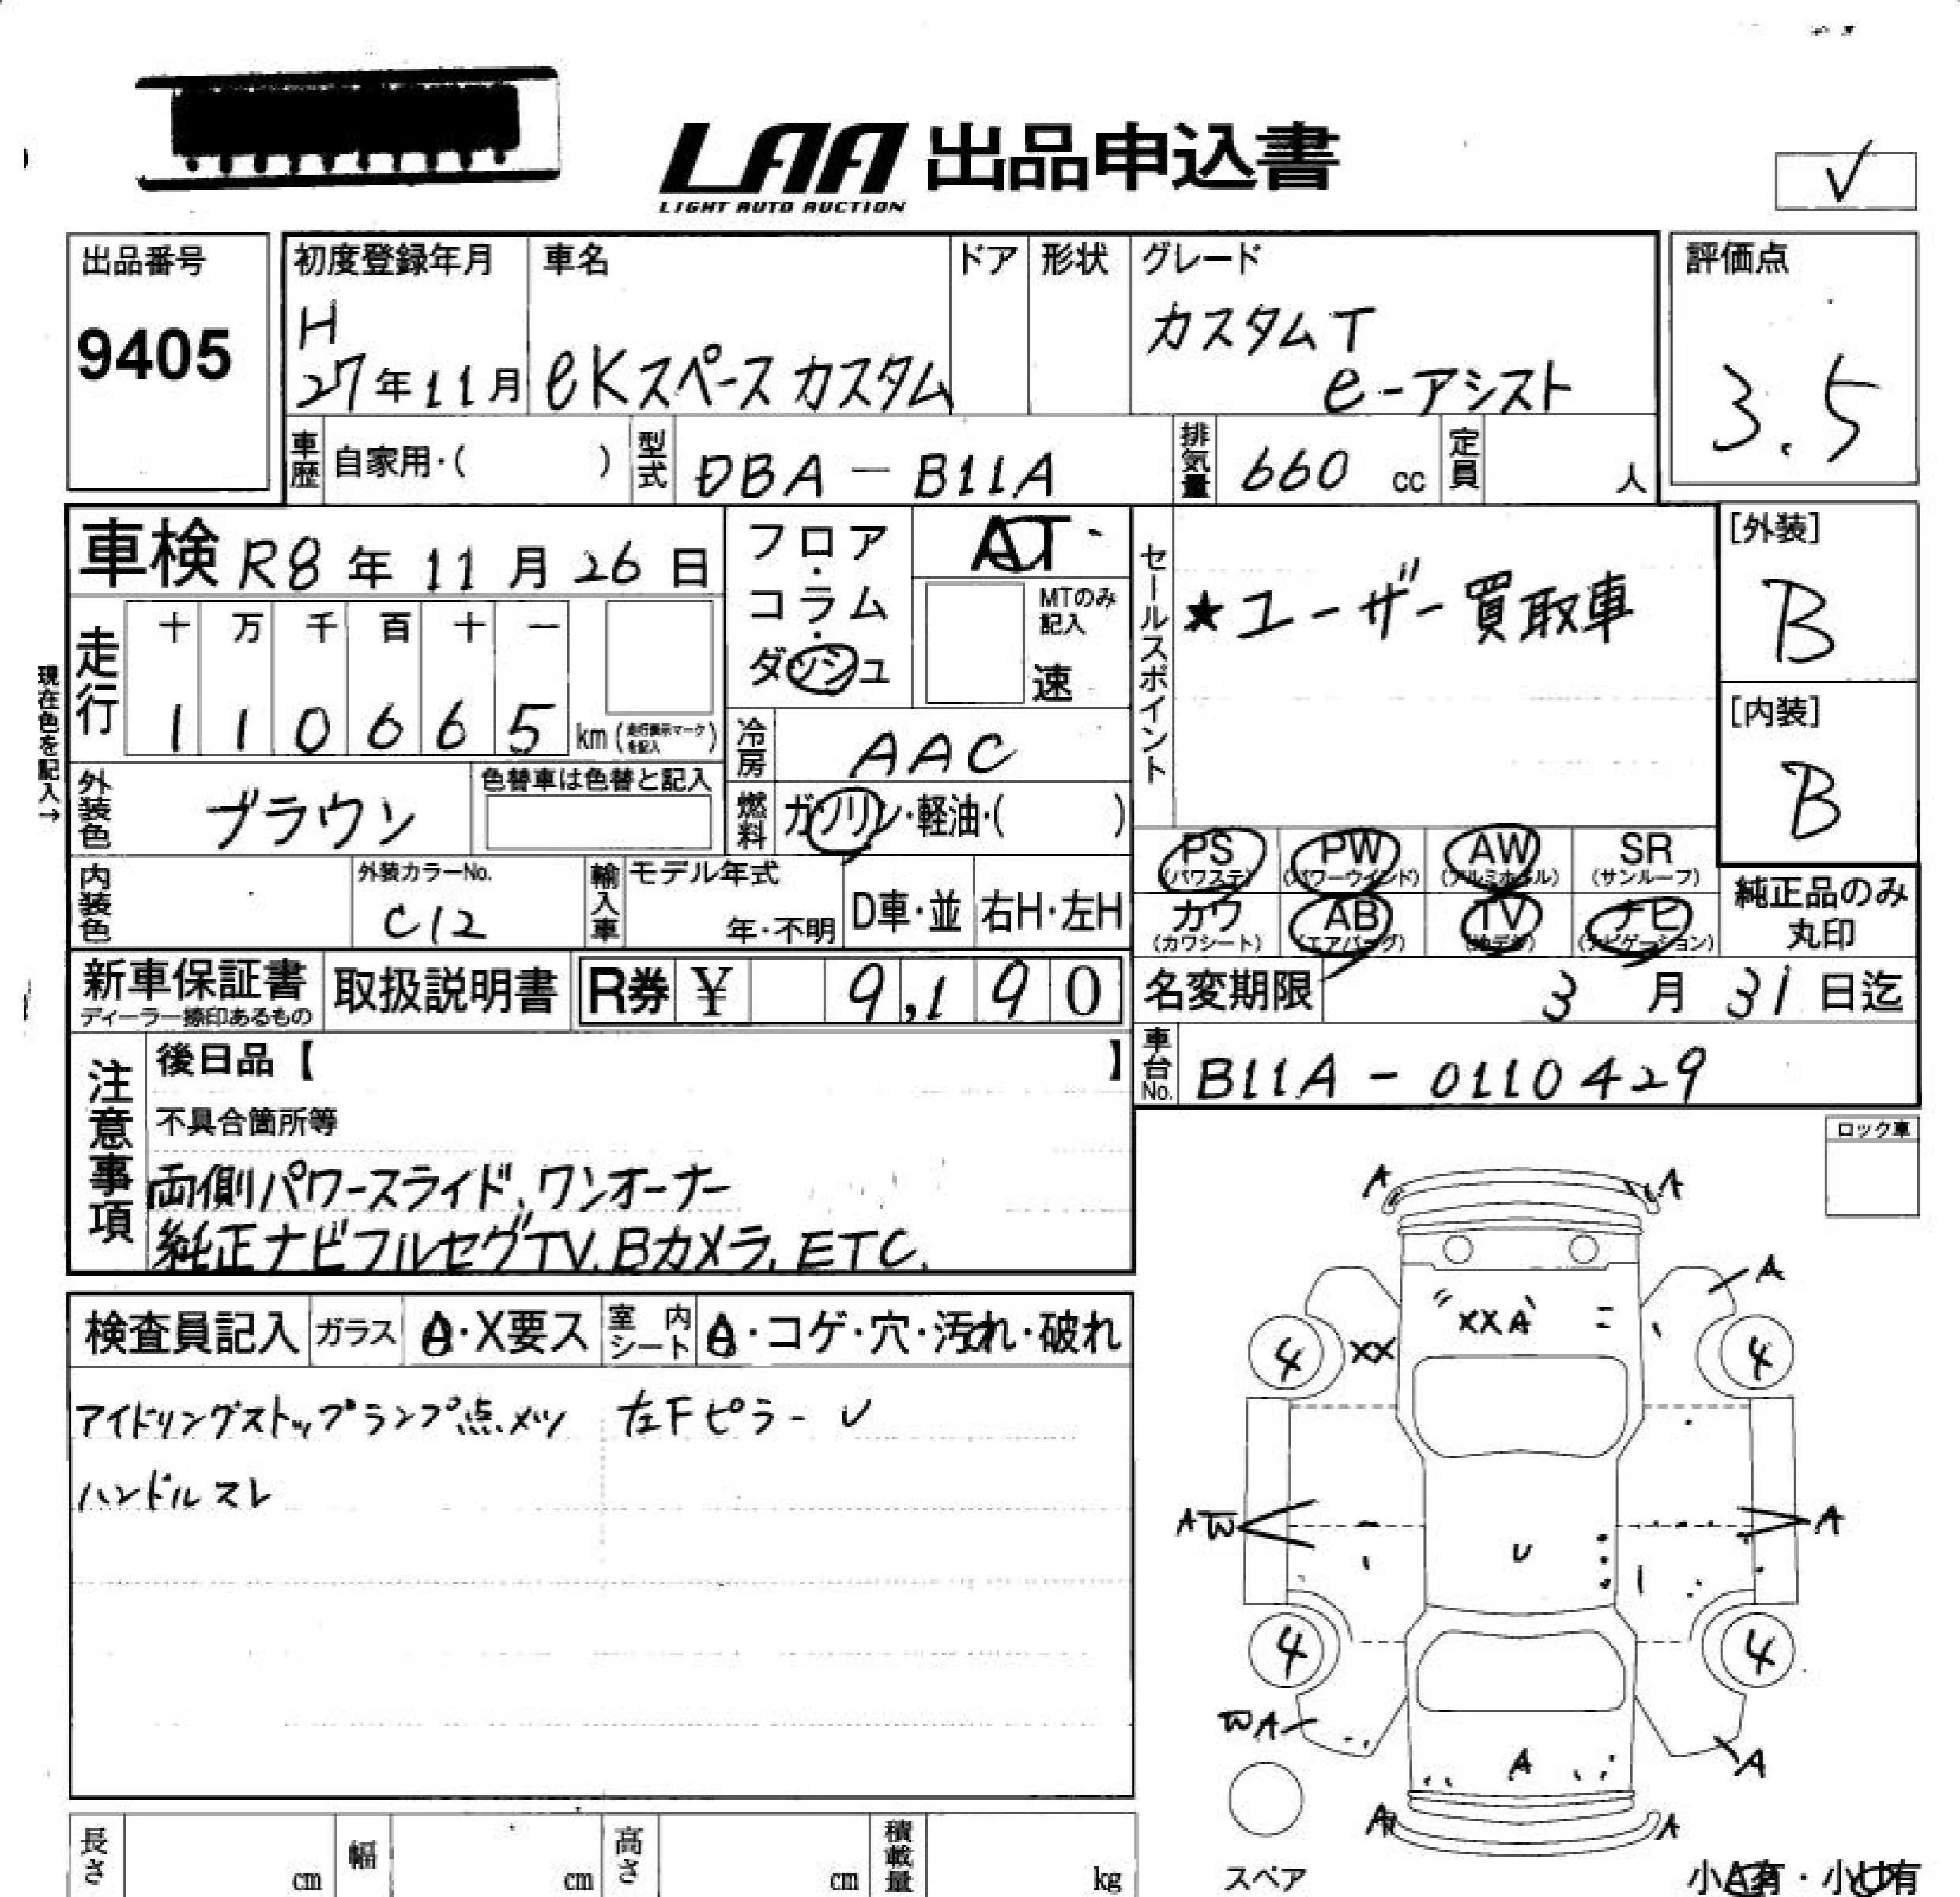 LAA 出品申込書
LIGHT AUTO AUCTION
✓
出品番号
9405
初度登録年月
H
27年11月
車名
eKスペース カスタム
ドア
形状
グレード
カスタムT
e-アシスト
評価点
3.5
車歴
自家用・( )
型式
DBA-B11A
排気量
660 cc
定員
人
車検 R8年11月26日
走行
十 万 千 百 十 一
1 1 0 6 6 5 km
現在色を記入→
外装色
ブラウン
色替車は色替と記入
内装色
外装カラーNo.
C12
輸入車
モデル年式
年・不明
D車・並
右H・左H
フロア
・
コラム
・
ダッシュ
AT
MTのみ
記入
速
冷房
AAC
燃料
ガソリン・軽油・( )
セールスポイント
★ユーザー買取車
[外装]
B
[内装]
B
PS
(パワステ)
PW
(パワーウインド)
AW
(アルミホイル)
SR
(サンルーフ)
カワ
(カワシート)
AB
(エアバッグ)
TV
ナビ
(ナビゲーション)
純正品のみ
丸印
新車保証書
ディーラー捺印あるもの
取扱説明書
R券 ¥ 9,190
名変期限 3月31日迄
車台No.
B11A-0110429
注意事項
後日品【 】
不具合箇所等
両側パワースライド、ワンオーナー
純正ナビフルセグTV、Bカメラ、ETC.
ロック車
検査員記入
ガラス
A・X要ス
室内シート
・コゲ・穴・汚れ・破れ
アイドリングストップランプ点メツ 左Fピラー U
ハンドルスレ
A A
A
XXA
4 XX 4
AW A
U
4 4
WA
A A
A A
スペア
長さ cm
幅 cm
高さ cm
積載量 kg
小A有・小U有